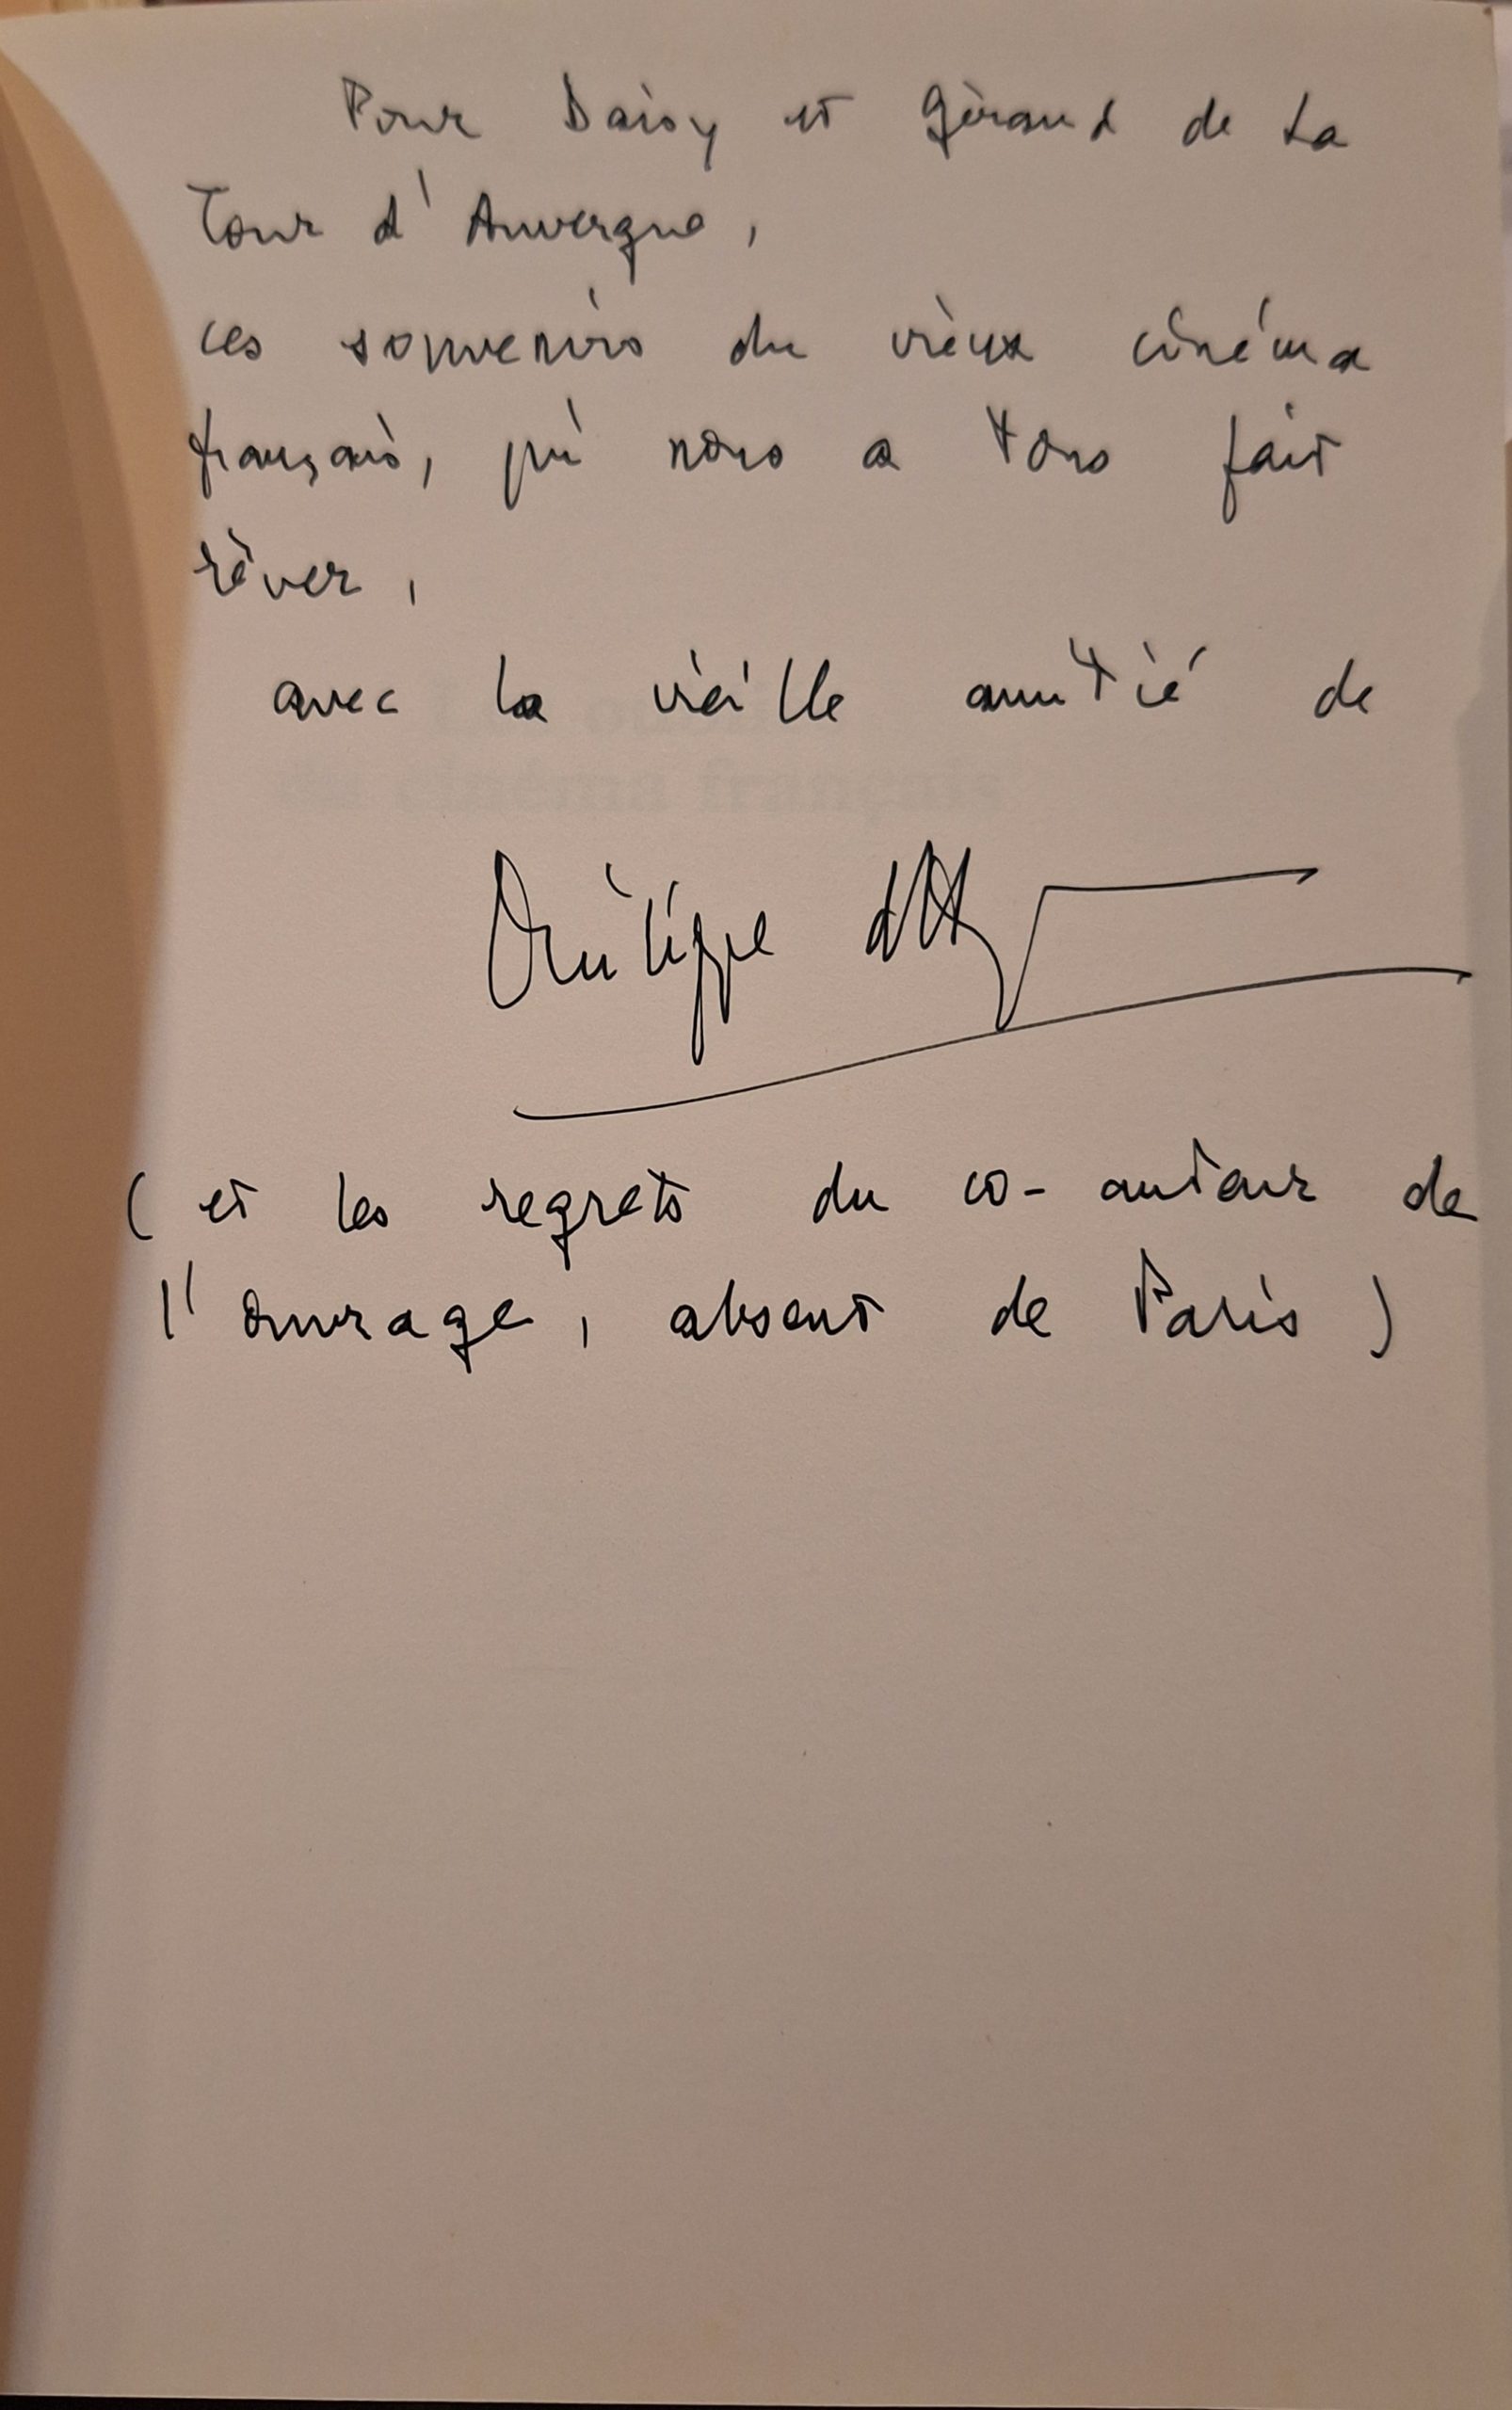 Pour Daisy et Géraud de La
Tour d'Auvergne,
ces souvenirs du vieux cinéma
français, qui nous a tous fait
rêver,
avec la vieille amitié de
du cinéma français
Philippe d'H
(et les regrets du co-auteur de
l'ouvrage, absent de Paris)